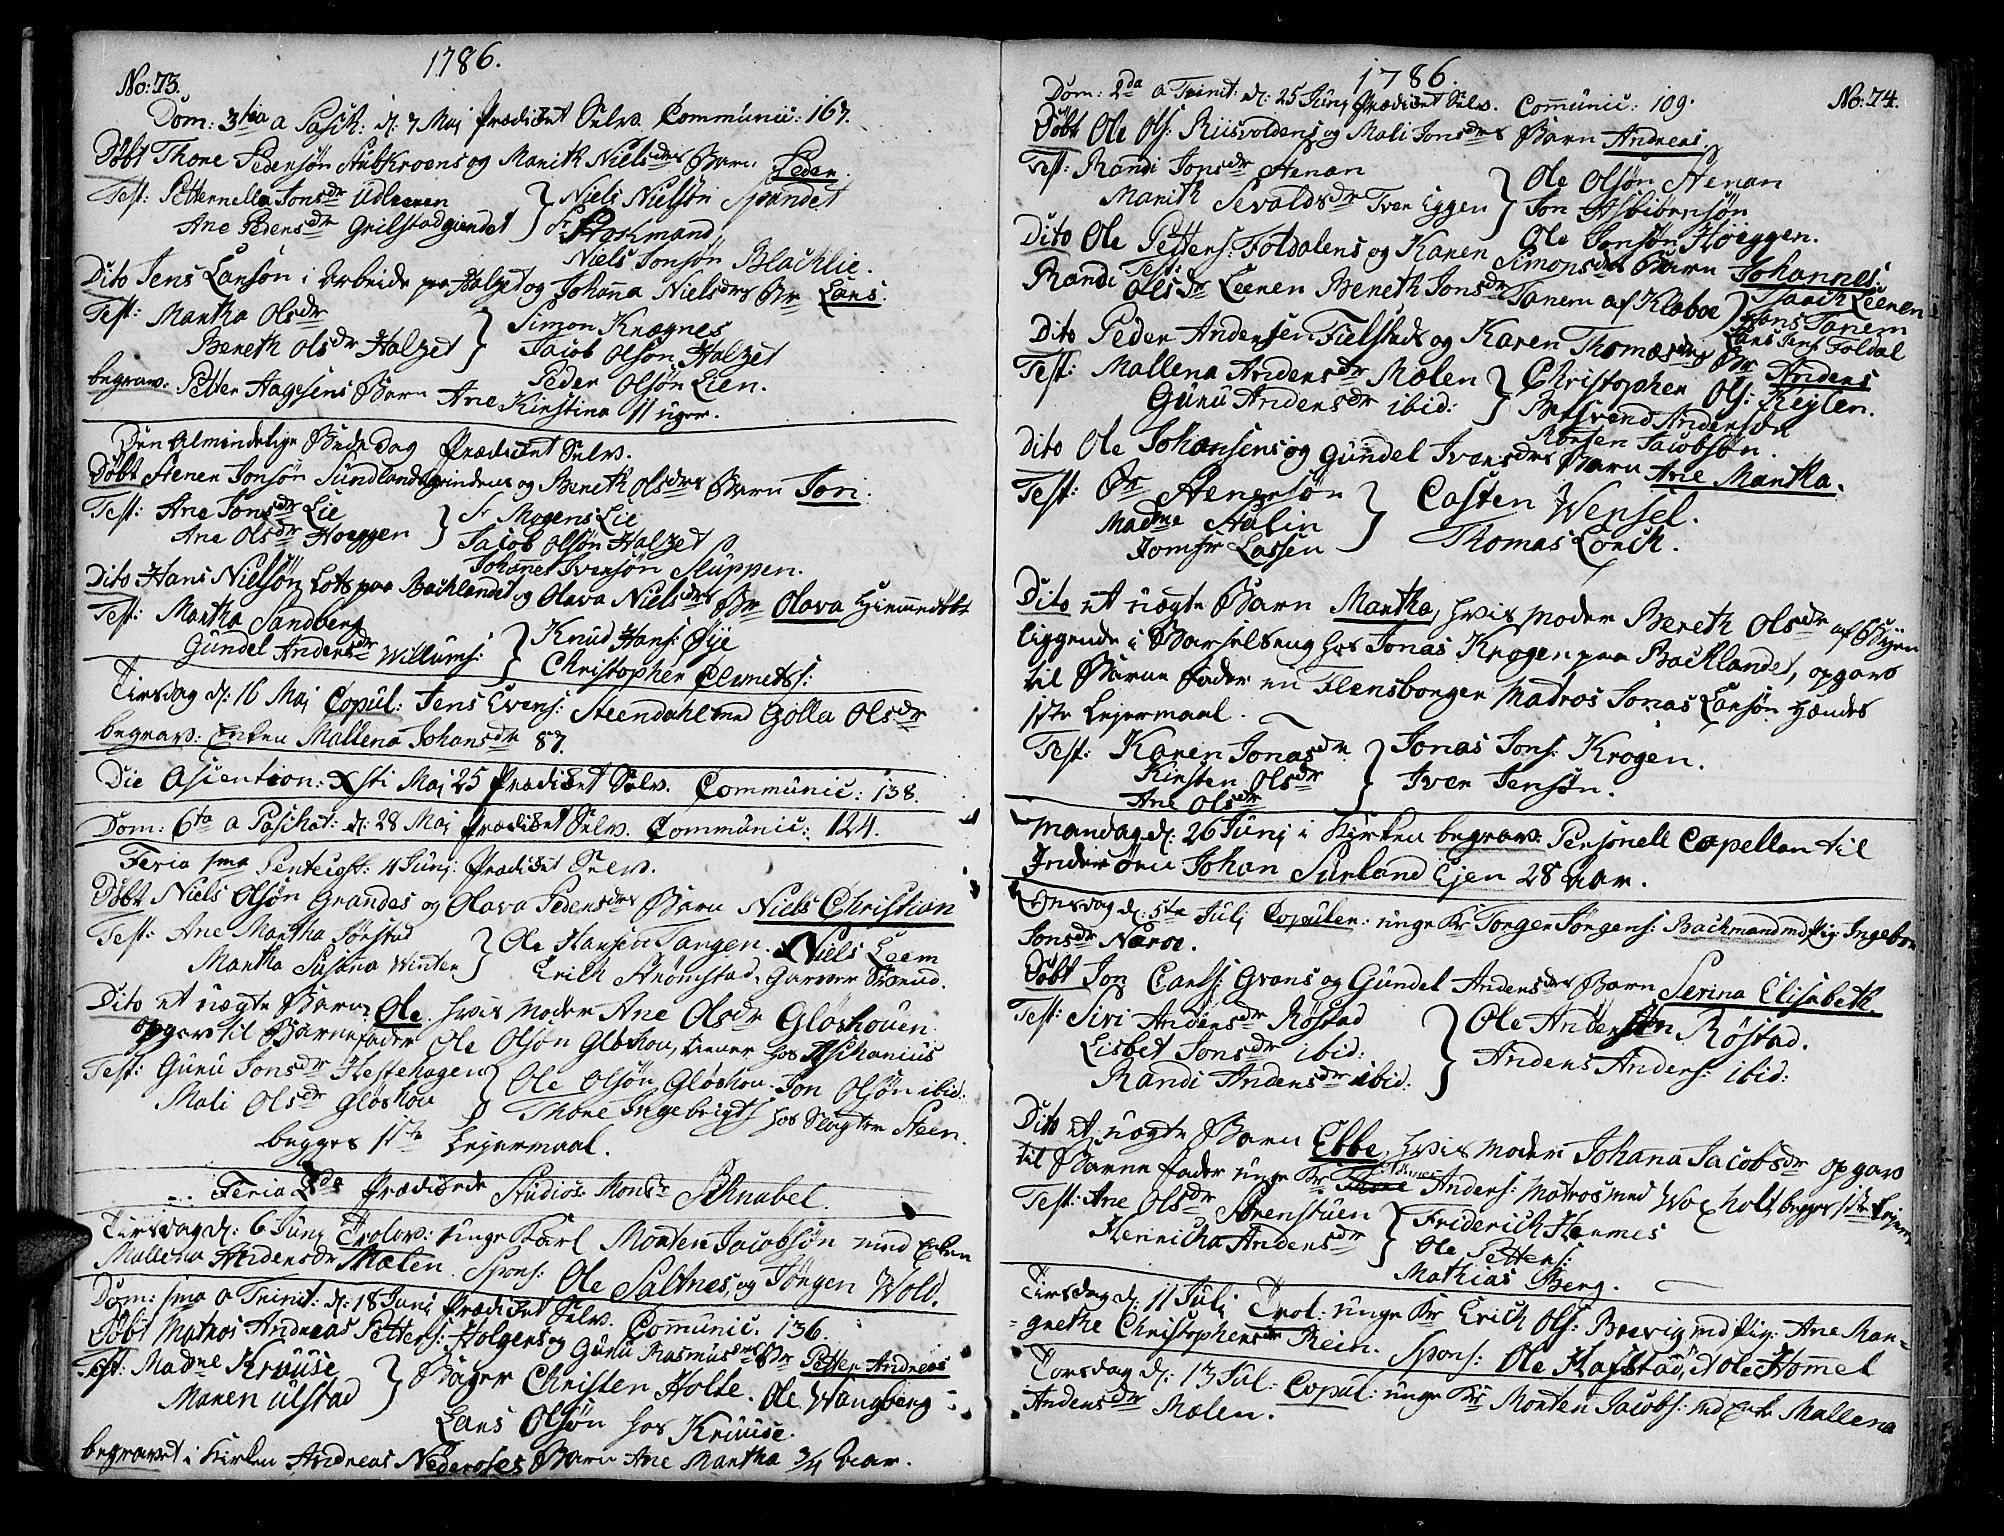 No: 73.
1786.
Dom: 3tia a Pasch: d: 7 Maj Prædicet Selv. Communic: 167.
Døbt Thore Pedersøn StubKroens og Marith Nielsdrs Barn Peder.
Test: Petternella Jonsdr Udleeren } Niels Nielsøn Spondet
Ane Pedersdr Grilstadgrindet } Sr Stockmand
Niels Jonsøn Blachlie.
Dito Jens Larsøn i Arbeide paa Halset og Johanna Nielsdrs Br Lars.
Test: Martha Olsdr } Simon Kragnes
Bereth Olsdr Halset } Jacob Olsøn Halset
Peder Olsøn Lien.
begrav: Petter Hagsens Barn Ane Kirstina 11 uger.
Den Almindelige Bede Dag Prædicet Selv.
Døbt Stener Jonsøn Sundlandsgrindens og Bereth Olsdrs Barn Jon.
Test: Ane Jonsdr Lie } Sr Mogens Lie
Ane Olsdr Hoeggen } Jacob Olsøn Halset
Johannes Iversøn Sluppen.
Dito Hans Nielsøn Lots paa Bachlandet og Olava Nielsdrs Br Olava Hjemmedøbt
Test: Martha Sandberg } Knud Hans: Øye
Gundel Andersdr Willums: } Christopher Clemets:
Tirsdag d: 16 Maj Copul: Jens Evens: Steendahl med Golla Olsdr
begrav: Enken Mallena Johansdr 87.
Die Ascention: Xsti Maj 25 Prædicet Selv. Communic: 138.
Dom: 6ta a Paschat: d: 28 Maj Prædicet Selv. Communic: 124.
Feria 1ma Pentecost: 4 Junj: Prædicet Selv.
Døbt Niels Olsøn Grandes og Olava Pedersdrs Barn Niels Christian
Test: Ane Martha Sørstad } Ole Hansen Tangen. Niels Leem
Martha Susana Winter } Erich Strømstad. Garver
Dito et uægte Barn Ole. hvis Moder Ane Olsdr Gløshouen
opgav til Barnefader Ole Olsøn Gløshou, tiener hos Aschanius
Test: Guru Jonsdr Hestehagen } Ole Olsøn Gløshou. Jon Olsøn ibid:
Mali Olsdr Gløshou } Thore Ingebrigts hos Slagter Steen.
begges 1ste Lejermaal.
Feria 2da Prædicede Studios: Monsr Schnabel.
Tirsdag d: 6 Junj Trolov: unge Karl Morten Jacobsøn med Enken
Mallena Andersdr Mælen. Spons: Ole Saltnes, og Jørgen Wold.
Dom: 1ma a Trinit: d: 18 Junj Prædicet Selv. Communic. 136.
Døbt Matros Andreas Petters: Holgers og Guru Rasmusdrs Br Petter Andreas
Test: Madme Kruuse } Bager Christen Holte. Ole Wangberg
Maren Ulstad } Lars Olsøn hos Kruuse.
begravet i Kirken Andreas Nederoses Barn Ane Martha 3/4 Aar.
1786.
No: 74.
Dom: 2da a Trinit: d: 25 Junj Prædicet Selv. Communic: 109.
Døbt Ole Ols: Riisvoldens og Mali Jonsdrs Barn Andreas.
Test: Randi Jonsdr Stenan } Ole Olsøn Stenan
Marith Sevaldsdr Tver Eggen } Jon Asbiørnsøn
Ole Jonsøn Høeggen.
Dito Ole Petters: Foldalens og Karen Simonsdrs Barn Johannes.
Test: Randi Olsdr Leeren Bereth Jonsdr Tanem af Klæboe } Isaach Leeren
Hans Tanem
Lars Jens Foldal
Dito Peder Andersen Fielstad og Karen Thomæsdrs Br Anders
Test: Mallena Andersdr Mælen } Christopher Ols: Rejten.
Guru Andersdr ibid: } Bersvend Andersen
Morten Jacobsøn.
Dito Ole Johansens og Gundel Iversdrs Barn Ane Martha.
Test: Br Stenersøn } Casten Wensel.
Madme Stalin } Thomas Lorck.
Jomfr Lassen
Dito et uægte Barn Martha, hvis Moder Bereth Olsdr af Byen
liggende i Barselseng hos Jonas Krogen paa Bachlandet, opgav
til Barne fader en Flensborger Matros Jonas Larsøn hendes
1ste Lejermaal.
Test: Karen Jonasdr } Jonas Jons: Krogen.
Kirsten Olsdr } Iver Jensøn.
Ane Olsdr
Mandag d: 26 Junj i Kirken begrav: Personell Capellan til
Inderøen Johan Surland Ejen 28 Aar.
Onsdag d: 5te Julj Copuler: unge Kr Torger Jørgens: Bachmand med Pig: Ingebor
Jonsdr Nærøe.
Døbt Jon Carls: Grans og Gundel Andersdrs Barn Serina Elisabeth.
Test: Siri Andersdr Røstad } Ole Andersøn Røstad.
Lisbet Jonsdr ibid: } Anders Anders: ibid:
Randi Andersdr ibid:
Dito et uægte Barn Ebbe, hvis Moder Johana Jacobsdr opgav
til Barne fader unge Kr Anders: Matros med Woxholt, begges 1ste Lejerm
Test: Ane Olsdr Sørenstuen } Friderich Hermes
Henricha Andersdr } Ole Petters:
Mathias Berg.
Tirsdag d: 11 Julj Trol: unge Kr Erich Ols: Brevig med Pig: Ane Mar-
grethe Christophersdr Rein. Spons: Ole Hafstad, et Ole Hommel
Torsdag d: 13 Jul: Copul: unge Kr Morten Jacobs: med Enk: Mallena
Andersdr Mælen.